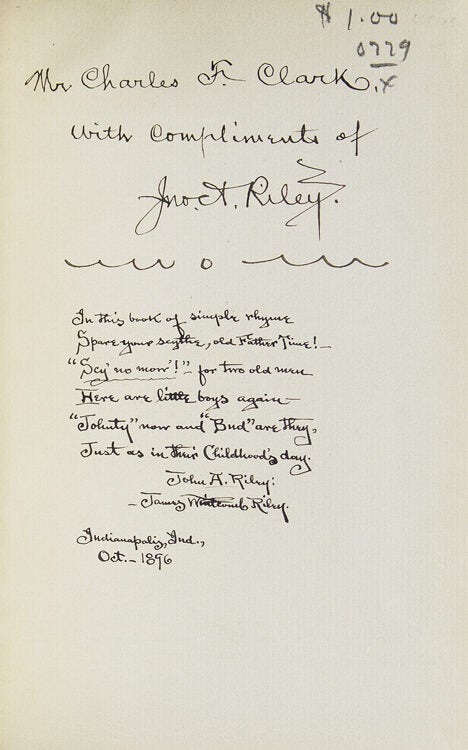 $ 1.00
0779
x
Mr Charles F. Clark,
With Compliments of
Jno. A. Riley.
In this book of simple rhyme
Spare your scythe, old Father Time! –
"Scy' no mow'!" – for two old men
Here are little boys again –
"Johnty" now and "Bud" are they,
Just as in their Childhood's day.
John A. Riley:
– James Whitcomb Riley.
Indianapolis, Ind.,
Oct. – 1896